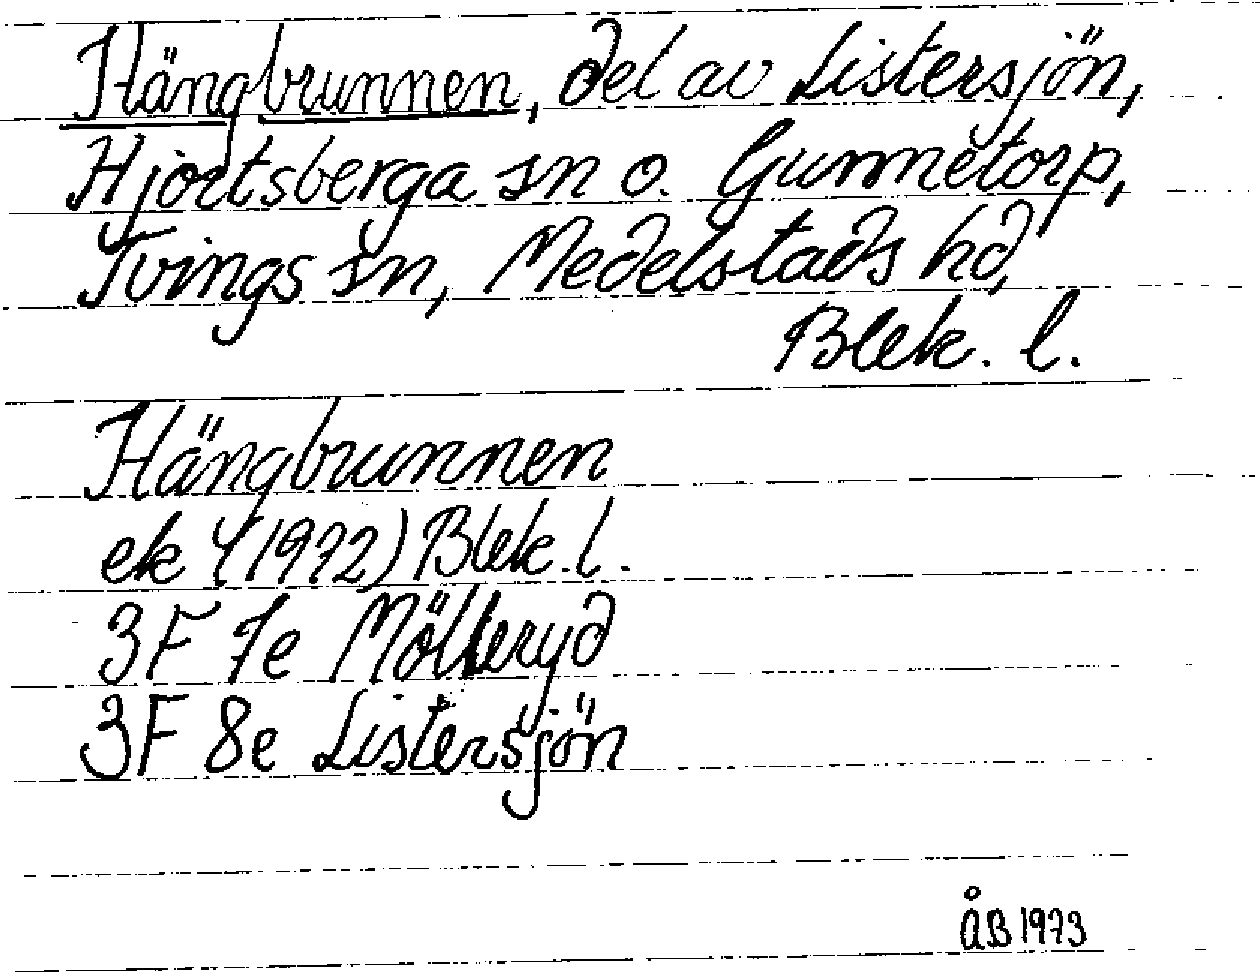 Hängbrunnen, del av Listersjön,
Hjortsberga sn o. Gunnetorp,
Tvings sn, Medelstads hd,
Blek. l.
Hängbrunnen
ek 4 (1972) Blek. l.
3F 7e Mölleryd
3F 8e Listersjön
ÅB 1973